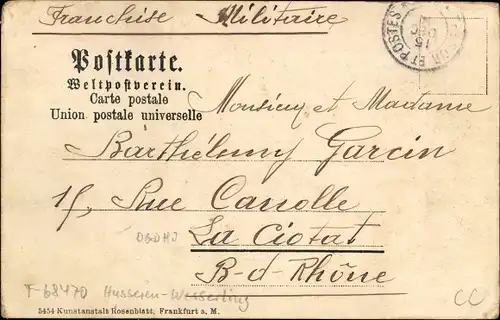 Franchise Militaire
Postkarte.
Weltpostverein.
Carte postale
Union postale universelle
Monsieur et Madame
Barthélemy Garcin
15, Rue Canolle
La Ciotat
B-d-Rhône
F-68470 Husseren-Wesserling
5454 Kunstanstalt Rosenblatt, Frankfurt a. M.
CC